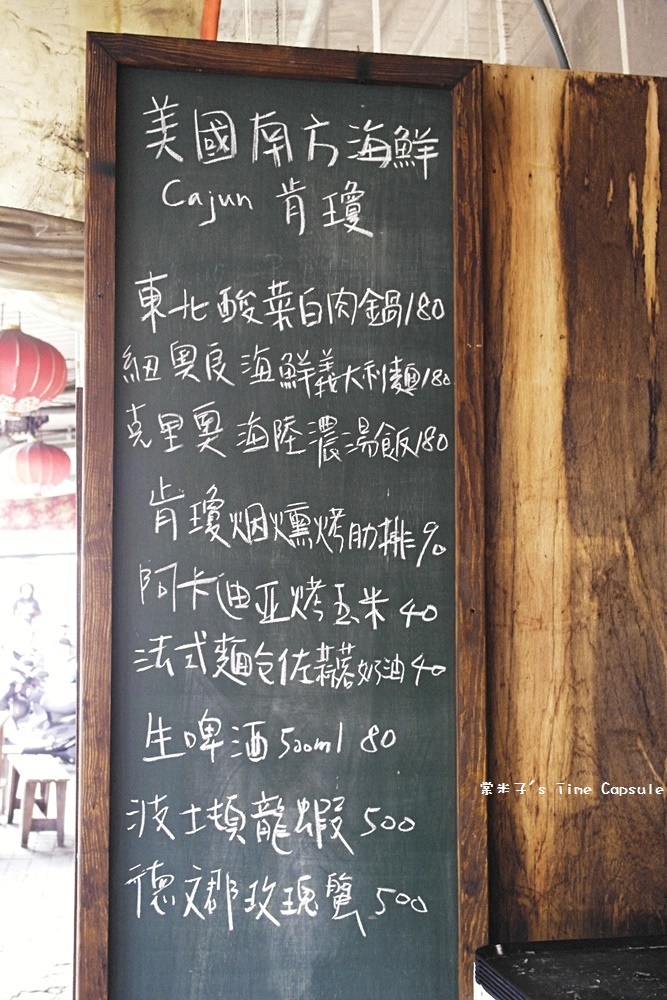 美國南方海鮮
Cajun 肯瓊
東北酸菜白肉鍋180
紐奧良海鮮義大利麵180
克里奧海陸濃湯飯180
肯瓊烟燻烤肋排90
阿卡迪亚烤玉米40
法式麵包佐蒜蓉奶油40
生啤酒500ml 80
波士頓龍蝦500
德文郡玫瑰蟹500
棠米子's Time Capsule